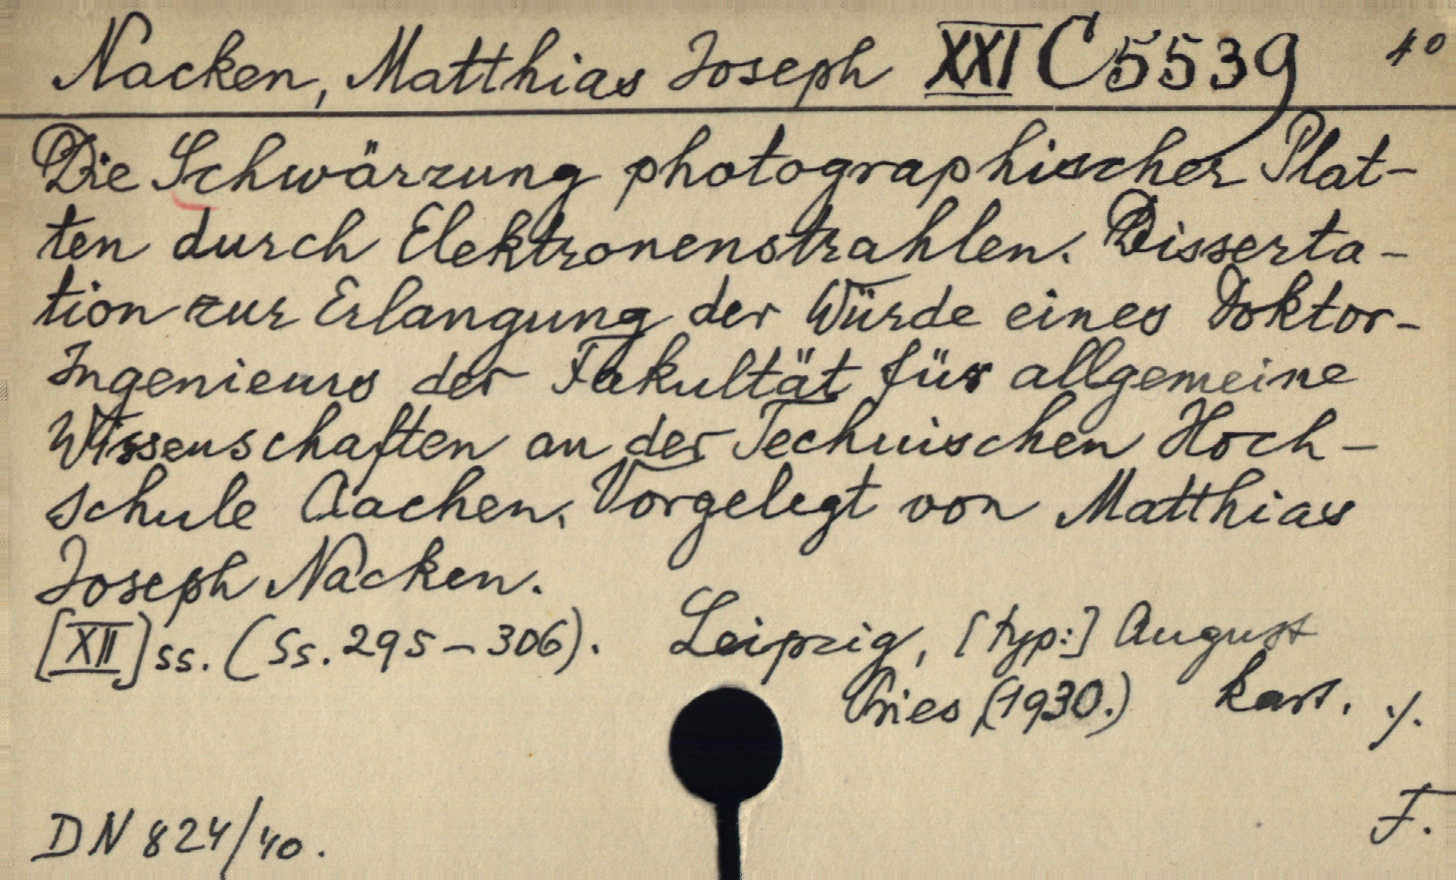 Nacken, Matthias Joseph XXI C 5539 4°
Die Schwärzung photographischer Plat-
ten durch Elektronenstrahlen. Disserta-
tion zur Erlangung der Würde eines Doktor-
Ingenieurs der Fakultät für allgemeine
Wissenschaften an der Technischen Hoch-
schule Aachen. Vorgelegt von Matthias
Joseph Nacken.
[XII] ss. (Ss. 295-306). Leipzig, [typ:] August
Pries (1930.) kart. ./.
F.
DN 824/40.